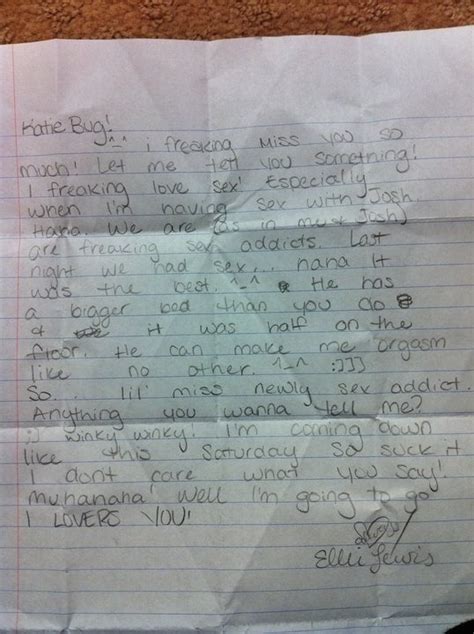 Katie Bug!
^-^ i freaking miss you so
much! Let me tell you something!
I freaking love sex! Especially
when I'm having sex with Josh..
Haha. We are (as in me & Josh)
are freaking sex addicts. Last
night we had sex... haha It
was the best. ^-^ He has
a bigger bed than you do
& it was half on the
floor. He can make me orgasm
like no other. ^-^ :]]]
So... lil' miss newly sex addict..
Anything you wanna tell me?
;) winky winky! I'm coming down
like this Saturday so suck it
I dont care what you say!
muhahaha! Well I'm going to go
I LOVERS YOU!
Elli Lewis